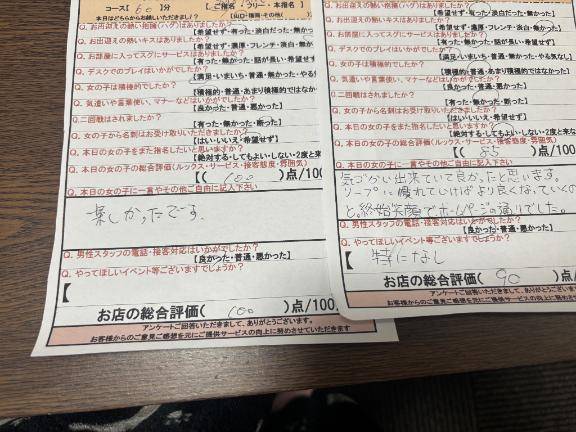 コース[ 60 ]分 【ご指名・フリー・本指名】
本日はどちらからお越しいただきまし！？
Q. お出迎えの熱い抱擁(ハグ)はありましたか？
【希望せず・有った・淡白だった・無かっ
Q. お出迎えの熱いキスはありましたか？
【希望せず・濃厚・フレンチ・淡白・無か
Q. お部屋に入ってすぐにサービスはありましたか？
【有った・無かった・話が長い・希望せ
Q. デスクでのプレイはいかがでしたか？
【満足・いまいち・普通・無かった・やる気
Q. 女の子は積極的でしたか？
【積極的・普通・あまり積極的ではなか
Q. 気遣いや言葉使い、マナーなどはいかがでしたか？
【良かった・普通・悪かった】
Q. 二回戦はされましたか？
【有った・無かった・断った】
Q. 女の子から名刺はお受け取りいただきましたか？
【はい・いいえ・希望せず】
Q. 本日の女の子をまた指名したいと思いますか？
【絶対する・してもよい・しない・2度と来
Q. 本日の女の子の総合評価(ルックス・サービス・接客態度・雰囲気)
【( 100 )点/100
Q. 本日の女の子に一言やその他ご自由に記入下さい
楽しかったです。
Q. 男性スタッフの電話・接客対応はいかがでしたか？
【良かった・普通・悪かった】
Q. やってほしいイベント等ございますでしょうか？
【
お店の総合評価( 100 )点/100
アンケートご回答いただきまして、ありがとうございます。
お客様からのご意見ご感想を元にご提供サービスの向上に努めさせていただきます
Q. お出迎えの熱い抱擁(ハグ)はありましたか？
【希望せず・有った・淡白だった・無かった】
Q. お出迎えの熱いキスはありましたか？
【希望せず・濃厚・フレンチ・淡白・無か
Q. お部屋に入ってすぐにサービスはありましたか？
【有った・無かった・話が長い・希望せ
Q. デスクでのプレイはいかがでしたか？
【満足・いまいち・普通・無かった・やる気なし】
Q. 女の子は積極的でしたか？
【積極的・普通・あまり積極的ではなかった】
Q. 気遣いや言葉使い、マナーなどはいかがでしたか？
【良かった・普通・悪かった】
Q. 二回戦はされましたか？
【有った・無かった・断った】
Q. 女の子から名刺はお受け取りいただきましたか？
【はい・いいえ・希望せず】
Q. 本日の女の子をまた指名したいと思いますか？
【絶対する・してもよい・しない・2度と来
Q. 本日の女の子の総合評価(ルックス・サービス・接客態度・雰囲気)
【( 85 )点/100
Q. 本日の女の子に一言やその他ご自由に記入下さい
気づかい出来ていて良かったと思います。
ソープに慣れていけばより良くなっていくの
と。終始笑顔でホームページの通りでした。
Q. 男性スタッフの電話・接客対応はいかがでしたか？
【良かった・普通・悪かった】
Q. やってほしいイベント等ございますでしょうか？
【 特になし
お店の総合評価( 90 )点/100
アンケートご回答いただきまして、ありがとうござい
お客様からのご意見ご感想を元にご提供サービスの向上に努めさせていただ